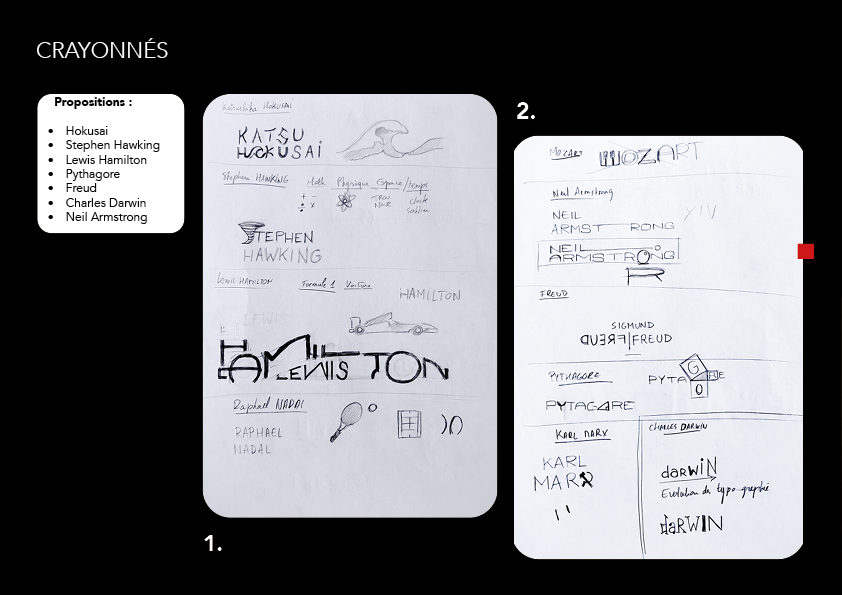 CRAYONNÉS
Propositions :
• Hokusai
• Stephen Hawking
• Lewis Hamilton
• Pythagore
• Freud
• Charles Darwin
• Neil Armstrong
HOKUSAI
KATSU
HOKUSAi
Stephen HAWKING
Math Physique Espace/temps
+ -
÷ x
TROU
NOIR
sablier
STEPHEN
HAWKING
LEWIS HAMILTON Formule 1 Voiture
HAMILTON
LEWIS
HAMILTON
LEWIS
Raphael NADAL
RAPHAEL
NADAL
1.
2.
MOZART MOZART
Neil Armstrong
NEIL
ARMST RONG
NEIL
ARMSTRONG
R
FREUD
SIGMUND
FREUD|FREUD
PYTHAGORE
PYTAGORE
PYTAGORE
KARL MARX
KARL
MARX
CHARLES DARWIN
darwiN
Evolution de typographie
daRWIN